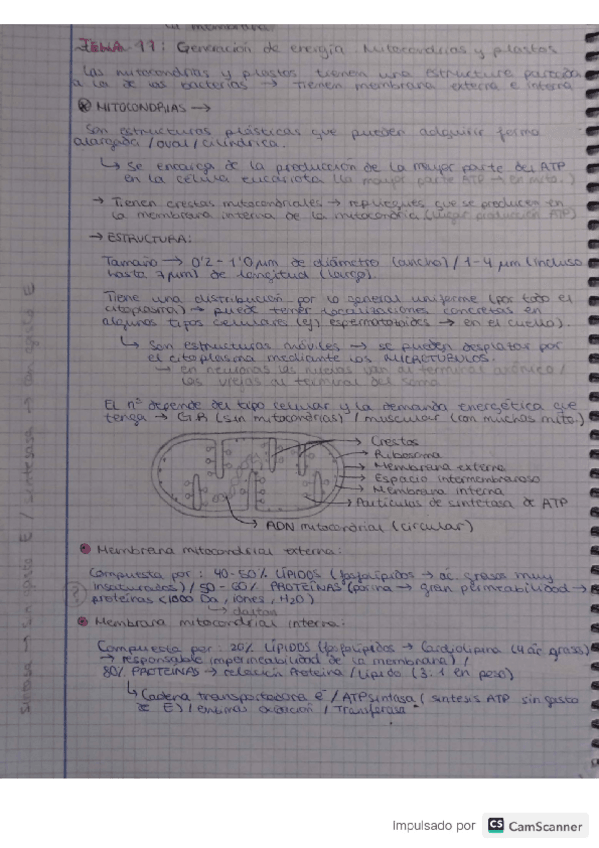 la membrana
TEMA 11: Generación de energía. Mitocondrias y plastos
Las mitocondrias y plastos tienen una estructura parecida
a la de las bacterias → tienen membrana externa e interna
MITOCONDRIAS →
Son estructuras plásticas que pueden adquirir forma
alargada / oval / cilíndrica.
↳ Se encarga de la producción de la mayor parte del ATP
en la célula eucariota (la mayor parte ATP → en mito.)
→ Tienen crestas mitocondriales → repliegues que se producen en
la membrana interna de la mitocondria (lugar producción ATP)
→ ESTRUCTURA:
Tamaño → 0'2 - 1'0 μm de diámetro (ancho) / 1-4 μm (incluso
hasta 7 μm) de longitud (largo).
Tiene una distribución por lo general uniforme (por todo el
citoplasma) → puede tener localizaciones concretas en
algunos tipos celulares (ej) espermatozoides → en el cuello).
↳ Son estructuras móviles → se pueden desplazar por
el citoplasma mediante los MICROTÚBULOS.
→ en neuronas las nuevas van al terminal axónico /
las viejas al terminal del soma
El nº depende del tipo celular y la demanda energética que
tenga → G.R (sin mitocondrias) / muscular (con muchas mito.)
Crestas
Ribosoma
Membrana externa
Espacio intermembranoso
Membrana interna
Partículas de sintetasa de ATP
ADN mitocondrial (circular)
Membrana mitocondrial externa:
Compuesta por: 40-50% LÍPIDOS (fosfolípidos → ác. grasos muy
insaturados) / 50-60% PROTEÍNAS (porina → gran permeabilidad →
proteínas <1000 Da, iones, H2O)
↳ dalton
?
Membrana mitocondrial interna:
Compuesta por: 20% LÍPIDOS (fosfolípidos → Cardiolipina (4 ác graso)
→ responsable impermeabilidad de la membrana) /
80% PROTEÍNAS → relación Proteína / Lípido (3:1 en peso)
↳ Cadena transportadora e- / ATPsintasa (síntesis ATP sin gasto
de E) / enzimas oxidación / Transferasa
sintasa → sin gasto E / sintetasa → con gasto E
Impulsado por CS CamScanner